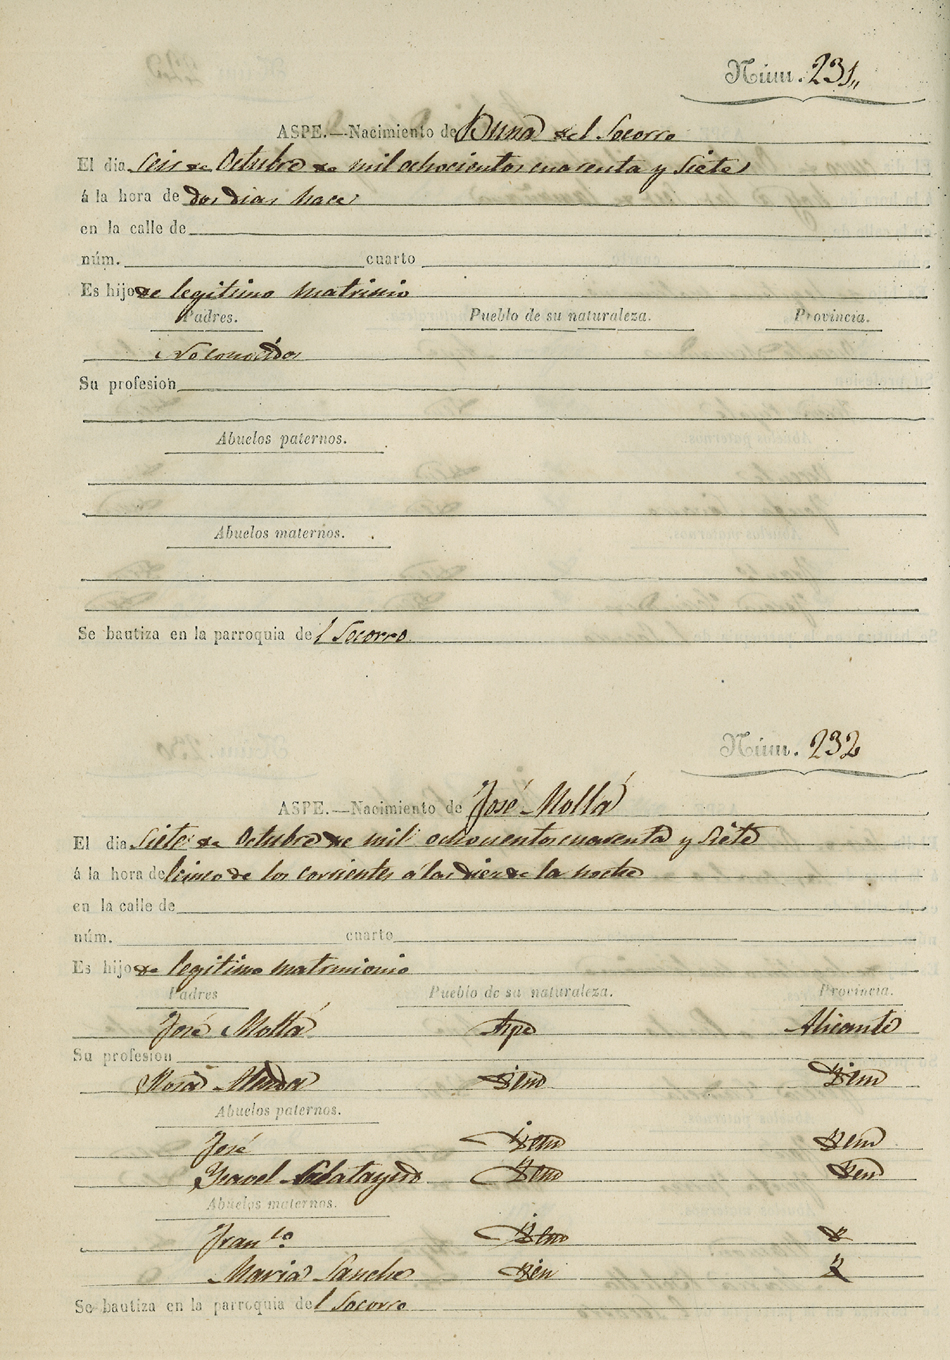 Núm. 231,,
ASPE.—Nacimiento de Bruna del Socorro
El dia Seis de Octubre de mil ochocientos cuarenta y Siete
á la hora de dos dias hace
en la calle de
núm. cuarto
Es hijo de legitimo matrinio
Padres. Pueblo de su naturaleza. Provincia.
No conocidos
Su profesion
Abuelos paternos.
Abuelos maternos.
Se bautiza en la parroquia del Socorro
Núm. 232
ASPE.—Nacimiento de José Mollá
El dia Siete de Octubre de mil ochocientos cuarenta y Siete
á la hora de Cinco de los corrientes á las diez de la noche
en la calle de
núm. cuarto
Es hijo de legitimo matrimonio
Padres Pueblo de su naturaleza. Provincia.
José Mollá Aspe Alicante
Su profesion
Rosa Idem Idem
Abuelos paternos.
José Idem Idem
Ysavel Calatayud Idem Idem
Abuelos maternos.
Fran.co Idem
Maria Sanche
Se bautiza en la parroquia del Socorro